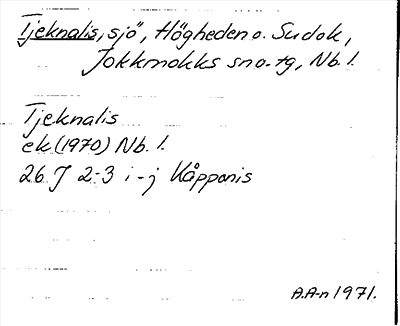 Tjeknalis, sjö, Högheden o. Sudok,
Jokkmokks sn o. tg, Nb. l.
Tjeknalis
ek (1970) Nb. l.
26 J 2-3 i-j Kåpponis
A.A-n 1971.